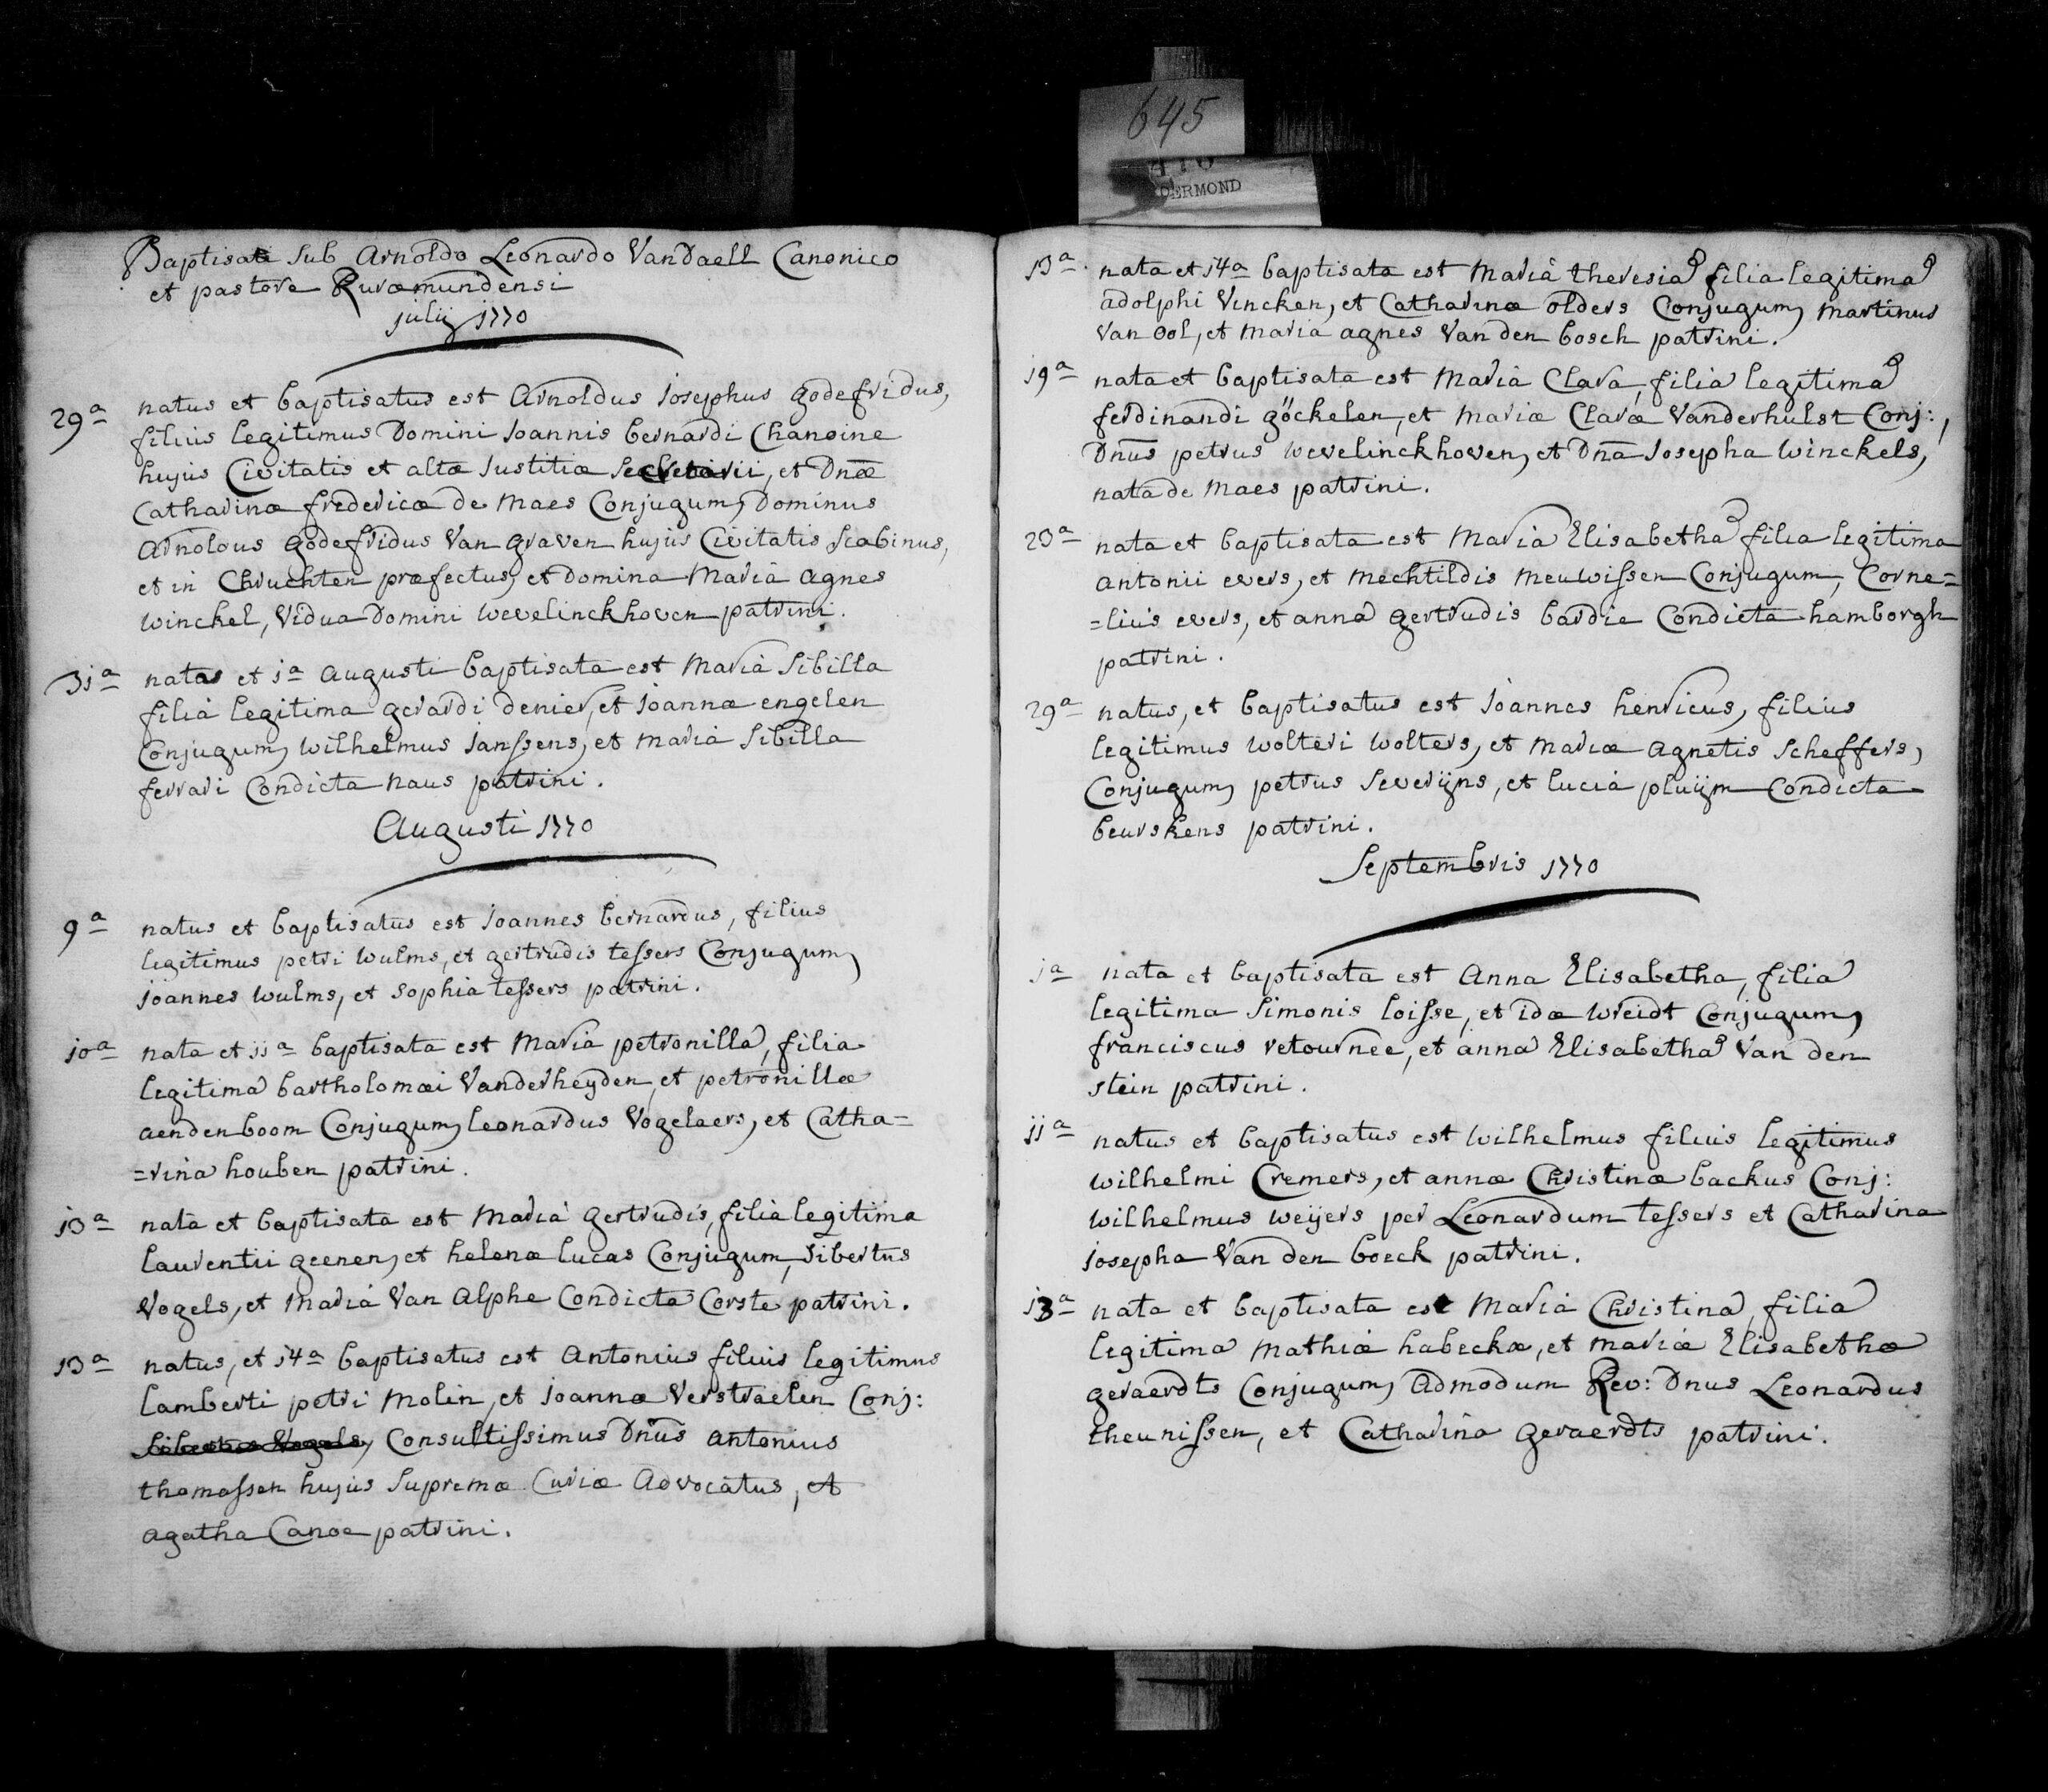 645
410
DERMOND
Baptisati sub Arnoldo Leonardo VanDaell Canonico
et pastore Ruræmundensi
julij 1770
29a natus et baptisatus est Arnoldus Josephus godefridus,
filius legitimus Domini Joannis bernardi Chanoine
hujus Civitatis et altæ Justitiæ Secretarii, et Dnæ
Catharinæ fredericæ de Maes Conjugum, Dominus
Arnoldus godefridus Van graven hujus Civitatis Scabinus,
et in Chruchten præfectus, et Domina Maria Agnes
winckel, Vidua Domini wevelinckhoven patrini.
3ja nata et ja Augusti baptisata est Maria Sibilla
filia legitima gerardi denier, et Joannæ engelen
Conjugum, wilhelmus Janssens, et Maria Sibilla
ferrari Condicta naus patrini.
Augusti 1770
9a natus et baptisatus est Joannes bernardus, filius
legitimus petri wulms, et gertrudis tessers Conjugum,
Joannes wulms, et Sophia tessers patrini.
joa nata et jja baptisata est Maria petronilla, filia
legitima bartholomæi Vanderheyden, et petronillæ
aendenboom Conjugum, leonardus Vogelaers, et Catha=
=rina houben patrini.
j3a nata et baptisata est Maria gertrudis, filia legitima
laurentii geenen, et helenæ lucas Conjugum, Sibertus
Vogels, et Maria Van Alphe Condicta Corste patrini.
13a natus, et 14a baptisatus est Antonius filius legitimus
lamberti petri Molin, et Joannæ Verstraelen Conj:
Sibertus Vogels, Consultissimus Dnus Antonius
thomassen hujus Supremæ Curiæ Advocatus, et
agatha Canoe patrini.
13a nata et 14a baptisata est Maria theresia filia legitima
adolphi Vincken, et Catharinæ olders Conjugum, Martinus
van ool, et Maria agnes Van den bosch patrini.
19a nata et baptisata est Maria Clara, filia legitima
ferdinandi göckelen, et Mariæ Claræ Vanderhulst Conj:,
Dnus petrus wevelinckhoven, et Dna Josepha winckels,
nata de Maes patrini.
23a nata et baptisata est Maria Elisabetha filia legitima
Antonii evers, et Mechtildis Meuwissen Conjugum, Corne=
=lius evers, et anna gertrudis bardie Condicta hamborgh
patrini.
29a natus, et baptisatus est Joannes henricus, filius
legitimus wolteri wolters, et Mariæ Agnetis Scheffers,
Conjugum, petrus Severijns, et lucia pluijm Condicta
beurskens patrini.
Septembris 1770
ja nata et baptisata est Anna Elisabetha, filia
legitima Simonis loisse, et idæ wreidt Conjugum,
franciscus retournée, et anna Elisabetha Van den
stein patrini.
jja natus et baptisatus est wilhelmus filius legitimus
wilhelmi Cremers, et annæ Christinæ backus Conj:
wilhelmus weijers per Leonardum tessers et Catharina
Josepha Van den boeck patrini.
j3a nata et baptisata est Maria Christina, filia
legitima Mathiæ habeckæ, et Mariæ Elisabethæ
geraerdts Conjugum, Admodum Rev: Dnus Leonardus
theunissen, et Catharina geraerdts patrini.